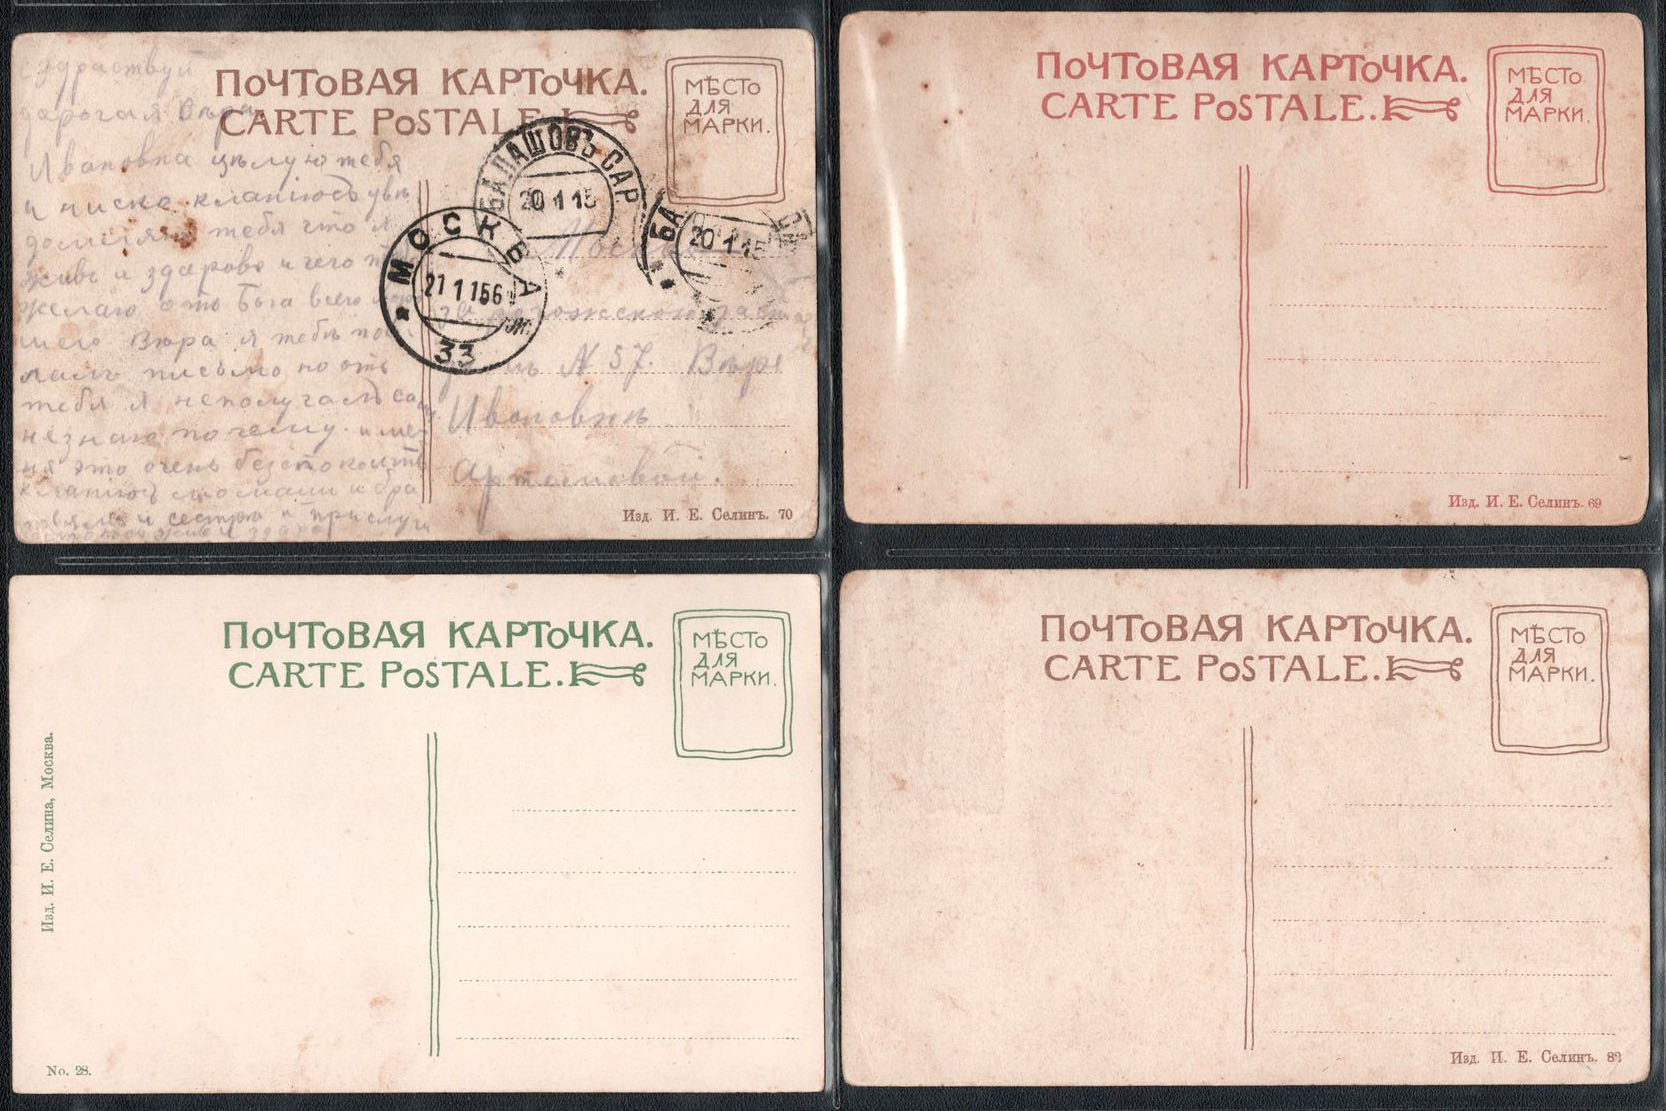 ПОЧТОВАЯ КАРТОЧКА.
CARTE POSTALE.
МѢСТО
ДЛЯ
МАРКИ.
здраствуй
дарогая Вѣра
Ивановна цѣлую тебя
и ниско кланіюсь увѣ
домляю тебя что я
живъ и здарово и чего
желаю ото Бога всего
Вѣра я тебѣ
письмо но отъ
тебя я неполучалъ
незнаю почему. и ме-
ня это очень безпокоитъ
и сестрѣ и прислуги
БАЛАШОВЪ САР.
20 1 15
БА
20 1 15
МОСКВА
21 1 15 6
33
Москва
N 57. Вѣре
Ивановнѣ
Артемовой.
Изд. И. Е. Селинъ. 70
ПОЧТОВАЯ КАРТОЧКА.
CARTE POSTALE.
МѢСТО
ДЛЯ
МАРКИ.
Изд. И. Е. Селинъ. 69
ПОЧТОВАЯ КАРТОЧКА.
CARTE POSTALE.
МѢСТО
ДЛЯ
МАРКИ.
Изд. И. Е. Селина, Москва.
No. 28.
ПОЧТОВАЯ КАРТОЧКА.
CARTE POSTALE.
МѢСТО
ДЛЯ
МАРКИ.
Изд. И. Е. Селинъ. 82